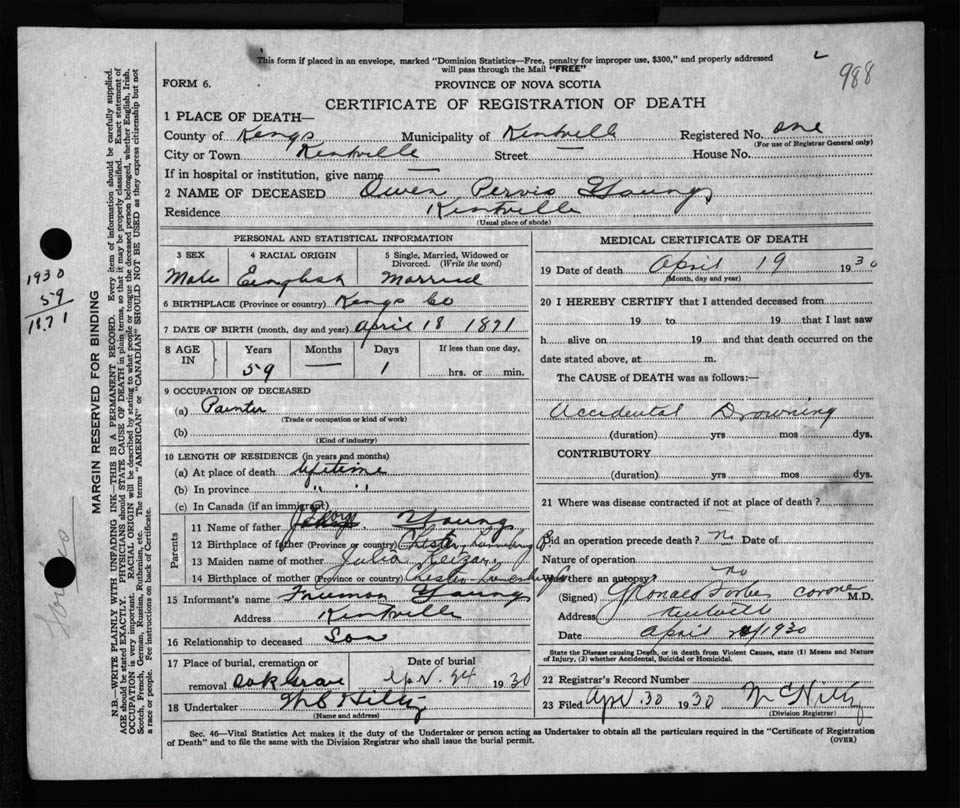 This form if placed in an envelope, marked "Dominion Statistics—Free, penalty for improper use, $300," and properly addressed
will pass through the Mail "FREE"
988
FORM 6.
PROVINCE OF NOVA SCOTIA
CERTIFICATE OF REGISTRATION OF DEATH
1 PLACE OF DEATH—
County of Kings Municipality of Kentville Registered No. one
(For use of Registrar General only)
City or Town Kentville Street — House No.
If in hospital or institution, give name —
2 NAME OF DECEASED Owen Pervis Young
Residence Kentville
(Usual place of abode)
PERSONAL AND STATISTICAL INFORMATION
3 SEX 4 RACIAL ORIGIN 5 Single, Married, Widowed or Divorced. (Write the word)
Male English Married
6 BIRTHPLACE (Province or country) Kings Co
7 DATE OF BIRTH (month, day and year) April 18 1871
8 AGE IN Years Months Days If less than one day,
59 — 1 hrs. or min.
9 OCCUPATION OF DECEASED
(a) Painter
(Trade or occupation or kind of work)
(b)
(Kind of industry)
10 LENGTH OF RESIDENCE (in years and months)
(a) At place of death lifetime
(b) In province " "
(c) In Canada (if an immigrant)
Parents
11 Name of father Young
12 Birthplace of father (Province or country) Chester, Lunenburg
13 Maiden name of mother Julia
14 Birthplace of mother (Province or country) Chester Lunenburg
15 Informant's name Freeman Young
Address Kentville
16 Relationship to deceased Son
17 Place of burial, cremation or removal Oak Grove Date of burial Apr. 24 1930
18 Undertaker
(Name and address)
MEDICAL CERTIFICATE OF DEATH
19 Date of death April 19 1930
(Month, day and year)
20 I HEREBY CERTIFY that I attended deceased from
19 to 19 that I last saw
h alive on 19 and that death occurred on the
date stated above, at m.
The CAUSE of DEATH was as follows:—
Accidental Drowning
(duration) yrs mos dys.
CONTRIBUTORY
(duration) yrs mos dys.
21 Where was disease contracted if not at place of death?
Did an operation precede death? no Date of
Nature of operation
Was there an autopsy? no
(Signed) Ronald Forbes coroner M.D.
Address Kentville
Date April 1930
State the Disease causing Death, or in death from Violent Causes, state (1) Means and Nature
of Injury, (2) whether Accidental, Suicidal or Homicidal.
22 Registrar's Record Number
23 Filed Apr. 30 1930
(Division Registrar)
Sec. 46—Vital Statistics Act makes it the duty of the Undertaker or person acting as Undertaker to obtain all the particulars required in the "Certificate of Registration
of Death" and to file the same with the Division Registrar who shall issue the burial permit. (OVER)
1930
59
1871
MARGIN RESERVED FOR BINDING
N.B.—WRITE PLAINLY WITH UNFADING INK—THIS IS A PERMANENT RECORD. Every item of information should be carefully supplied.
AGE should be stated EXACTLY. PHYSICIANS should STATE CAUSE OF DEATH in plain terms, so that it may be properly classified. Exact statement of
OCCUPATION is very important. RACIAL ORIGIN will be described by stating to what people or tongue the deceased person belonged, whether English, Irish,
Scotch, French, German, Russian, Ruthenian, etc. The terms "AMERICAN" or "CANADIAN" SHOULD NOT BE USED as they express citizenship but not
a race or people. See instructions on back of Certificate.